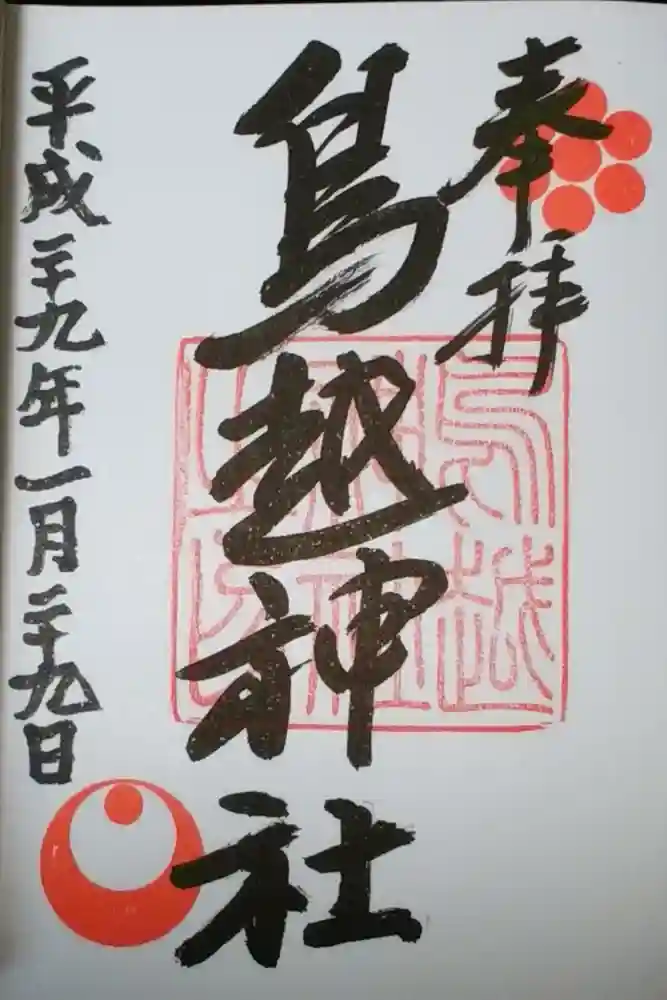 奉拝
鳥越神社
平成二十九年一月二十九日